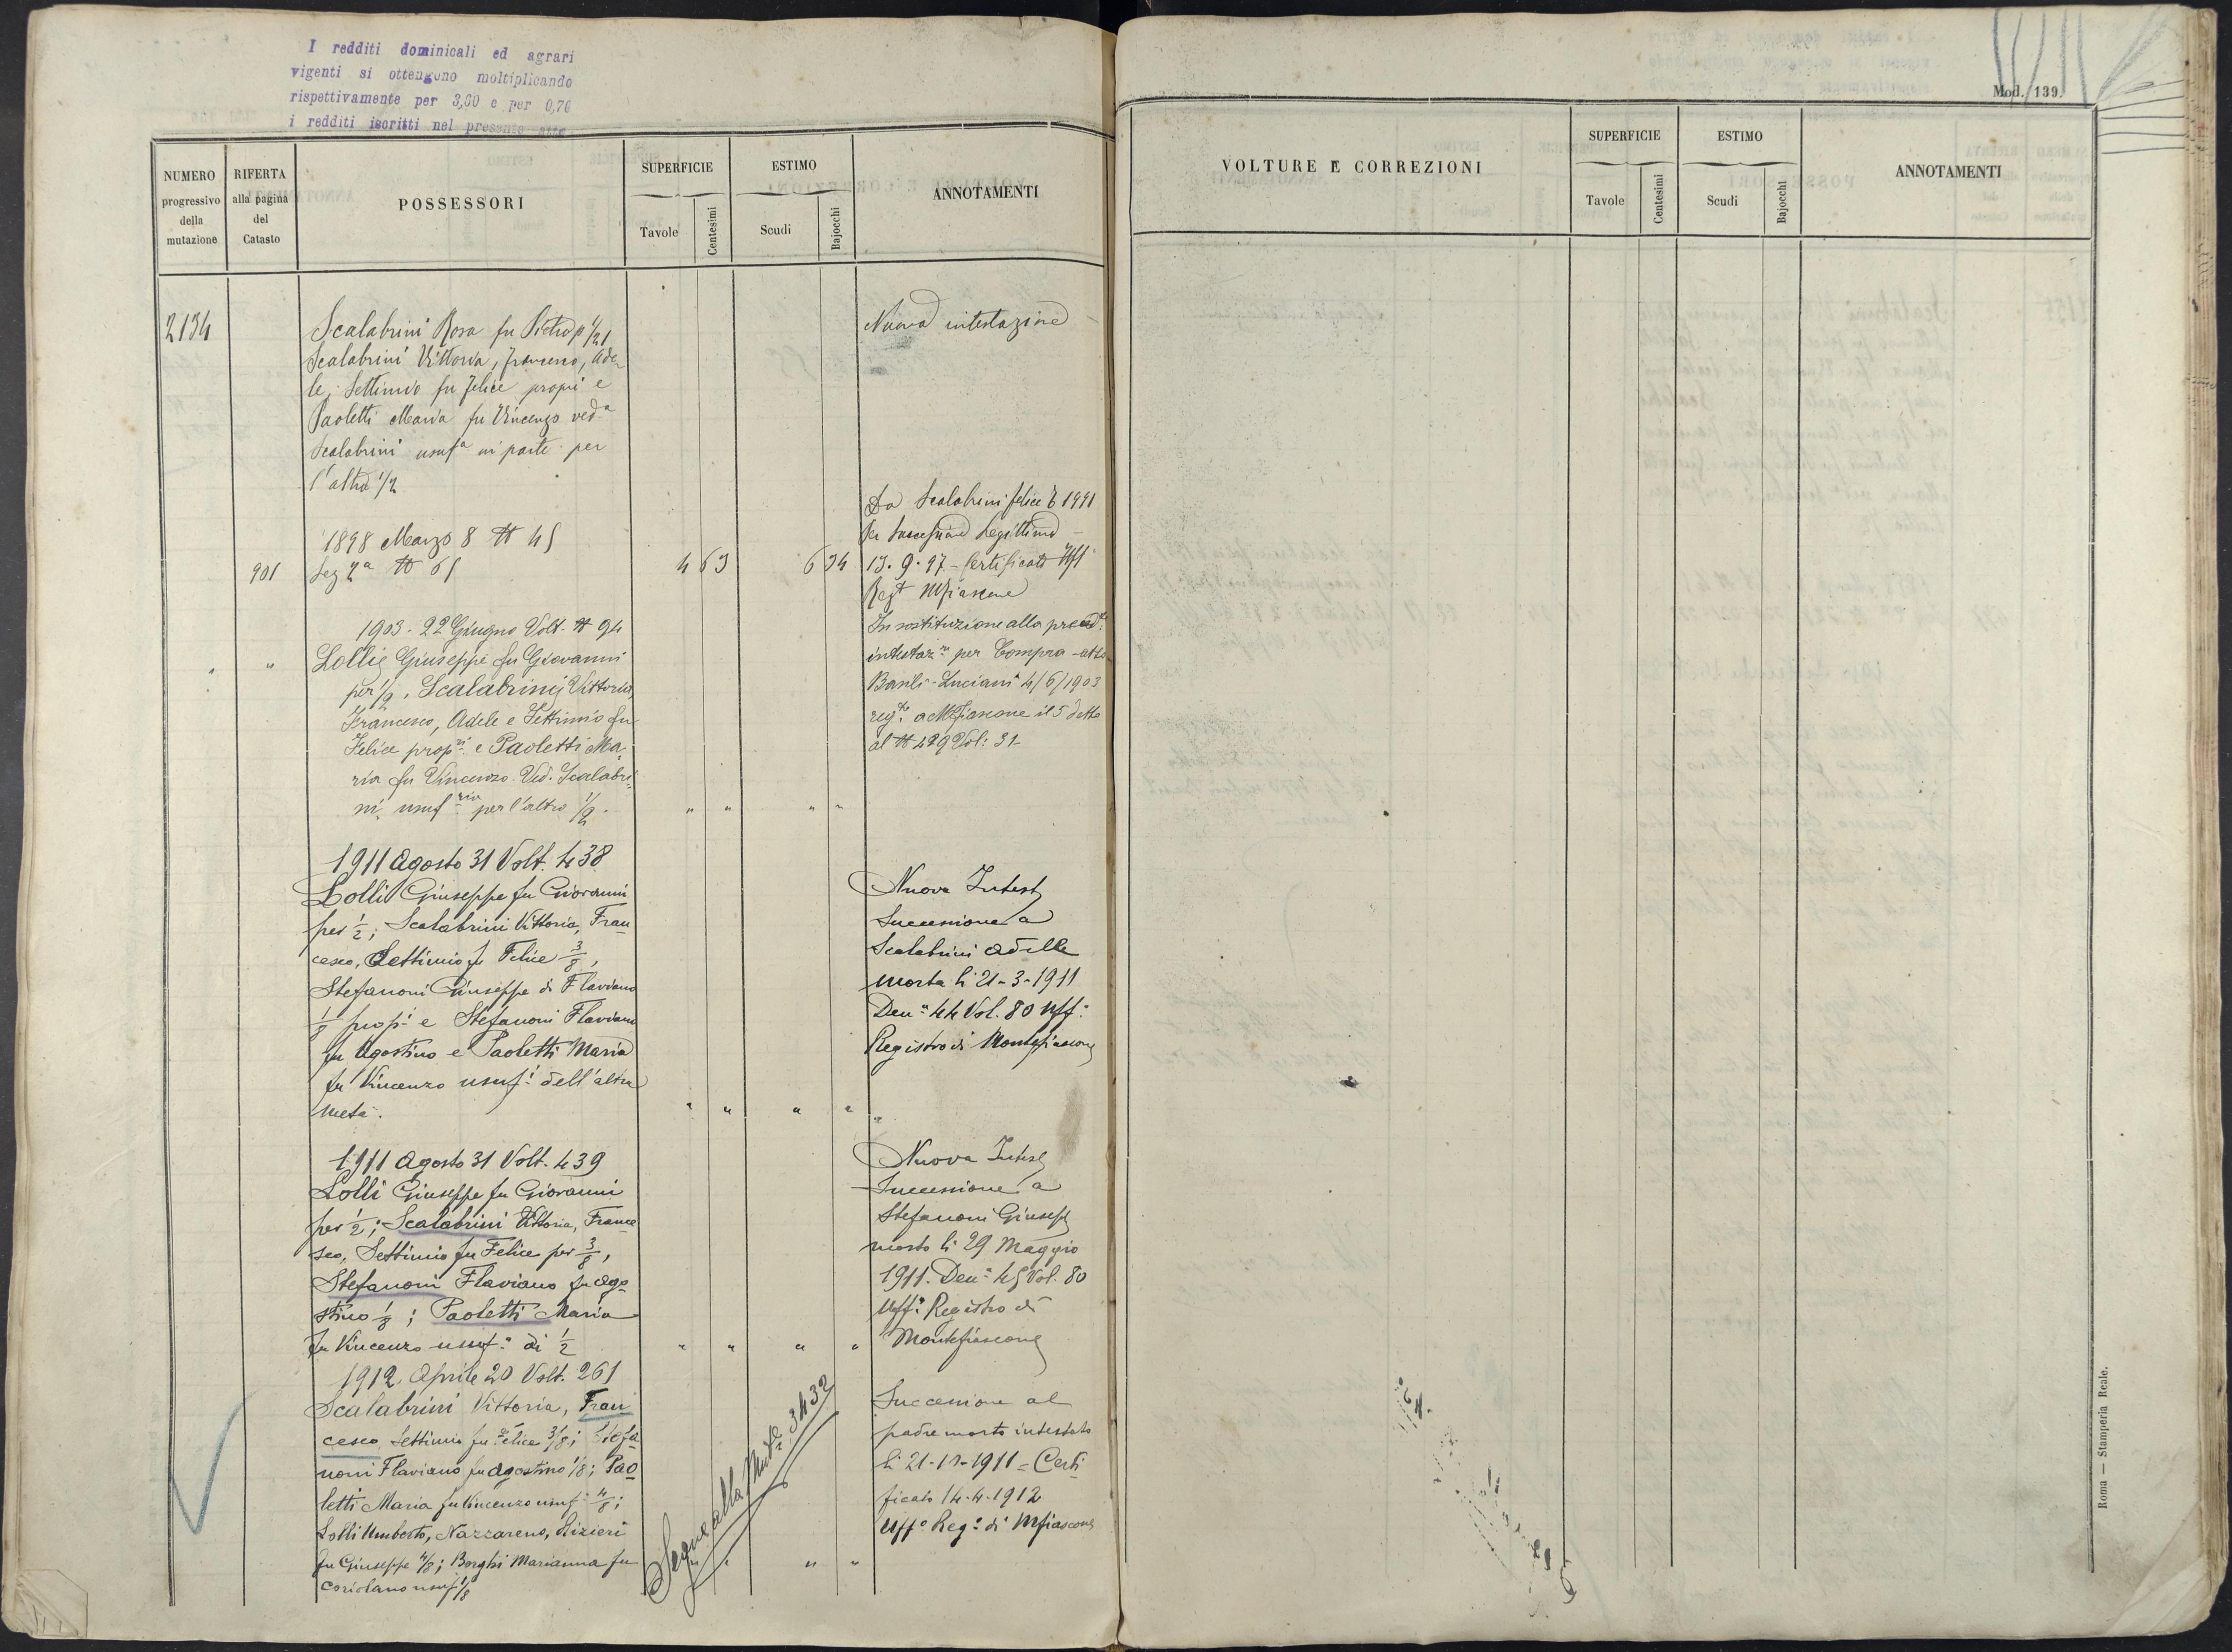 I redditi dominicali ed agrari
vigenti si ottengono moltiplicando
rispettivamente per 3,60 e per 0,76
i redditi iscritti nel presente atto
NUMERO
progressivo
della
mutazione
RIFERTA
alla pagina
del
Catasto
POSSESSORI
SUPERFICIE
Tavole
Centesimi
ESTIMO
Scudi
Bajocchi
ANNOTAMENTI
2134
Scalabrini Rosa fu Pietro p 1/2,
Scalabrini Vittoria, Francesco, Ade-
le, Settimio fu Felice propri e
Paoletti Maria fu Vincenzo ved.a
Scalabrini usuf.a in parte per
l'altra 1/2
Nuova intestazione
1898 Marzo 8 N 45
901 Sez 2a N 61 4 63 6 34
Da Scalabrini felice
Per Successione Legittima
13.9.97 - Certificato
Regt Mfiascone
1903. 22 Giugno Volt. N 94
" " Lolli Giuseppe fu Giovanni
per 1/2, Scalabrini Vittoria,
Francesco, Adele e Settimio fu
Felice prop.ri e Paoletti Ma-
ria fu Vincenzo Ved. Scalabri-
ni usuf.ria per l'altro 1/2. " " " "
In sostituzione alla preced.te
intestaz.ne per Compra - atto
Basili-Luciani 4/6/1903
reg.to a Mfiascone il 5 detto
al N 429 Vol: 31-
1911 Agosto 31 Volt. 438
Lolli Giuseppe fu Giovanni
per 1/2; Scalabrini Vittoria, Fran
cesco, Settimio fu Felice 3/8,
Stefanoni Giuseppe di Flaviano
1/8 prop.i e Stefanoni Flaviano
fu Agostino e Paoletti Maria
fu Vincenzo usuf.i dell'altra
metà. " " " " "
Nuova Intest
Successione a
Scalabrini Adelle
morta li 21-3-1911
Den.a 44 Vol. 80 Uff.o
Registro di Montefiascone
1911 Agosto 31 Volt. 439
Lolli Giuseppe fu Giovanni
per 1/2; Scalabrini Vittoria, France
sco, Settimio fu Felice per 3/8,
Stefanoni Flaviano fu Ago-
stino 1/8; Paoletti Maria
fu Vincenzo usuf.a di 1/2 " " " "
Nuova Intest
Successione a
Stefanoni Giusep
morto li 29 Maggio
1911. Den.a 45 Vol. 80
Uff.o Registro di
Montefiascone
1912 Aprile 20 Volt. 261
Scalabrini Vittoria, Fran
cesco, Settimio fu Felice 3/8; Stefa
noni Flaviano fu Agostino 1/8; Pao
letti Maria fu Vincenzo usuf. 4/8;
Lolli Umberto, Nazzareno, Rizieri
fu Giuseppe 4/8; Borghi Marianna fu
Coriolano usuf. 1/8
" " " "
Segue alla Mut.e 3432
Successione al
padre morto intestato
Certi
ficato 14-4-1912
Uff.o Reg.o di Mfiascone
Mod. 139.
VOLTURE E CORREZIONI
SUPERFICIE
Tavole
Centesimi
ESTIMO
Scudi
Bajocchi
ANNOTAMENTI
Roma — Stamperia Reale.